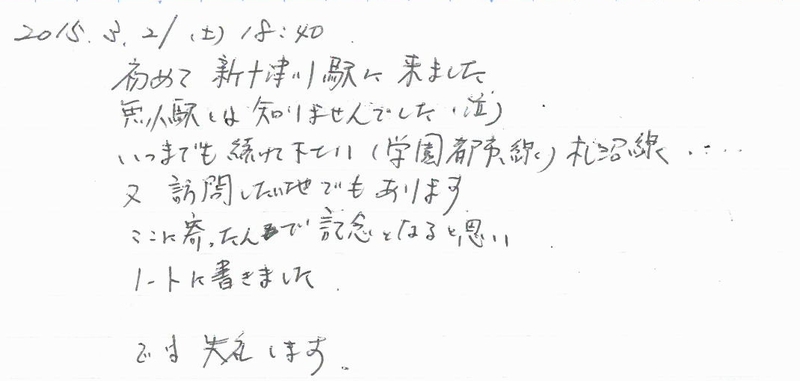 2015.3.21 (土) 18:40
初めて 新十津川駅に 来ました
無人駅とは 知りませんでした(泣)
いつまでも 続けて下さい (学園都市線) 札沼線....
又 訪問したい地でもあります
ここに寄ったんで 記念となると思い
ノートに書きました.
では 失礼します.